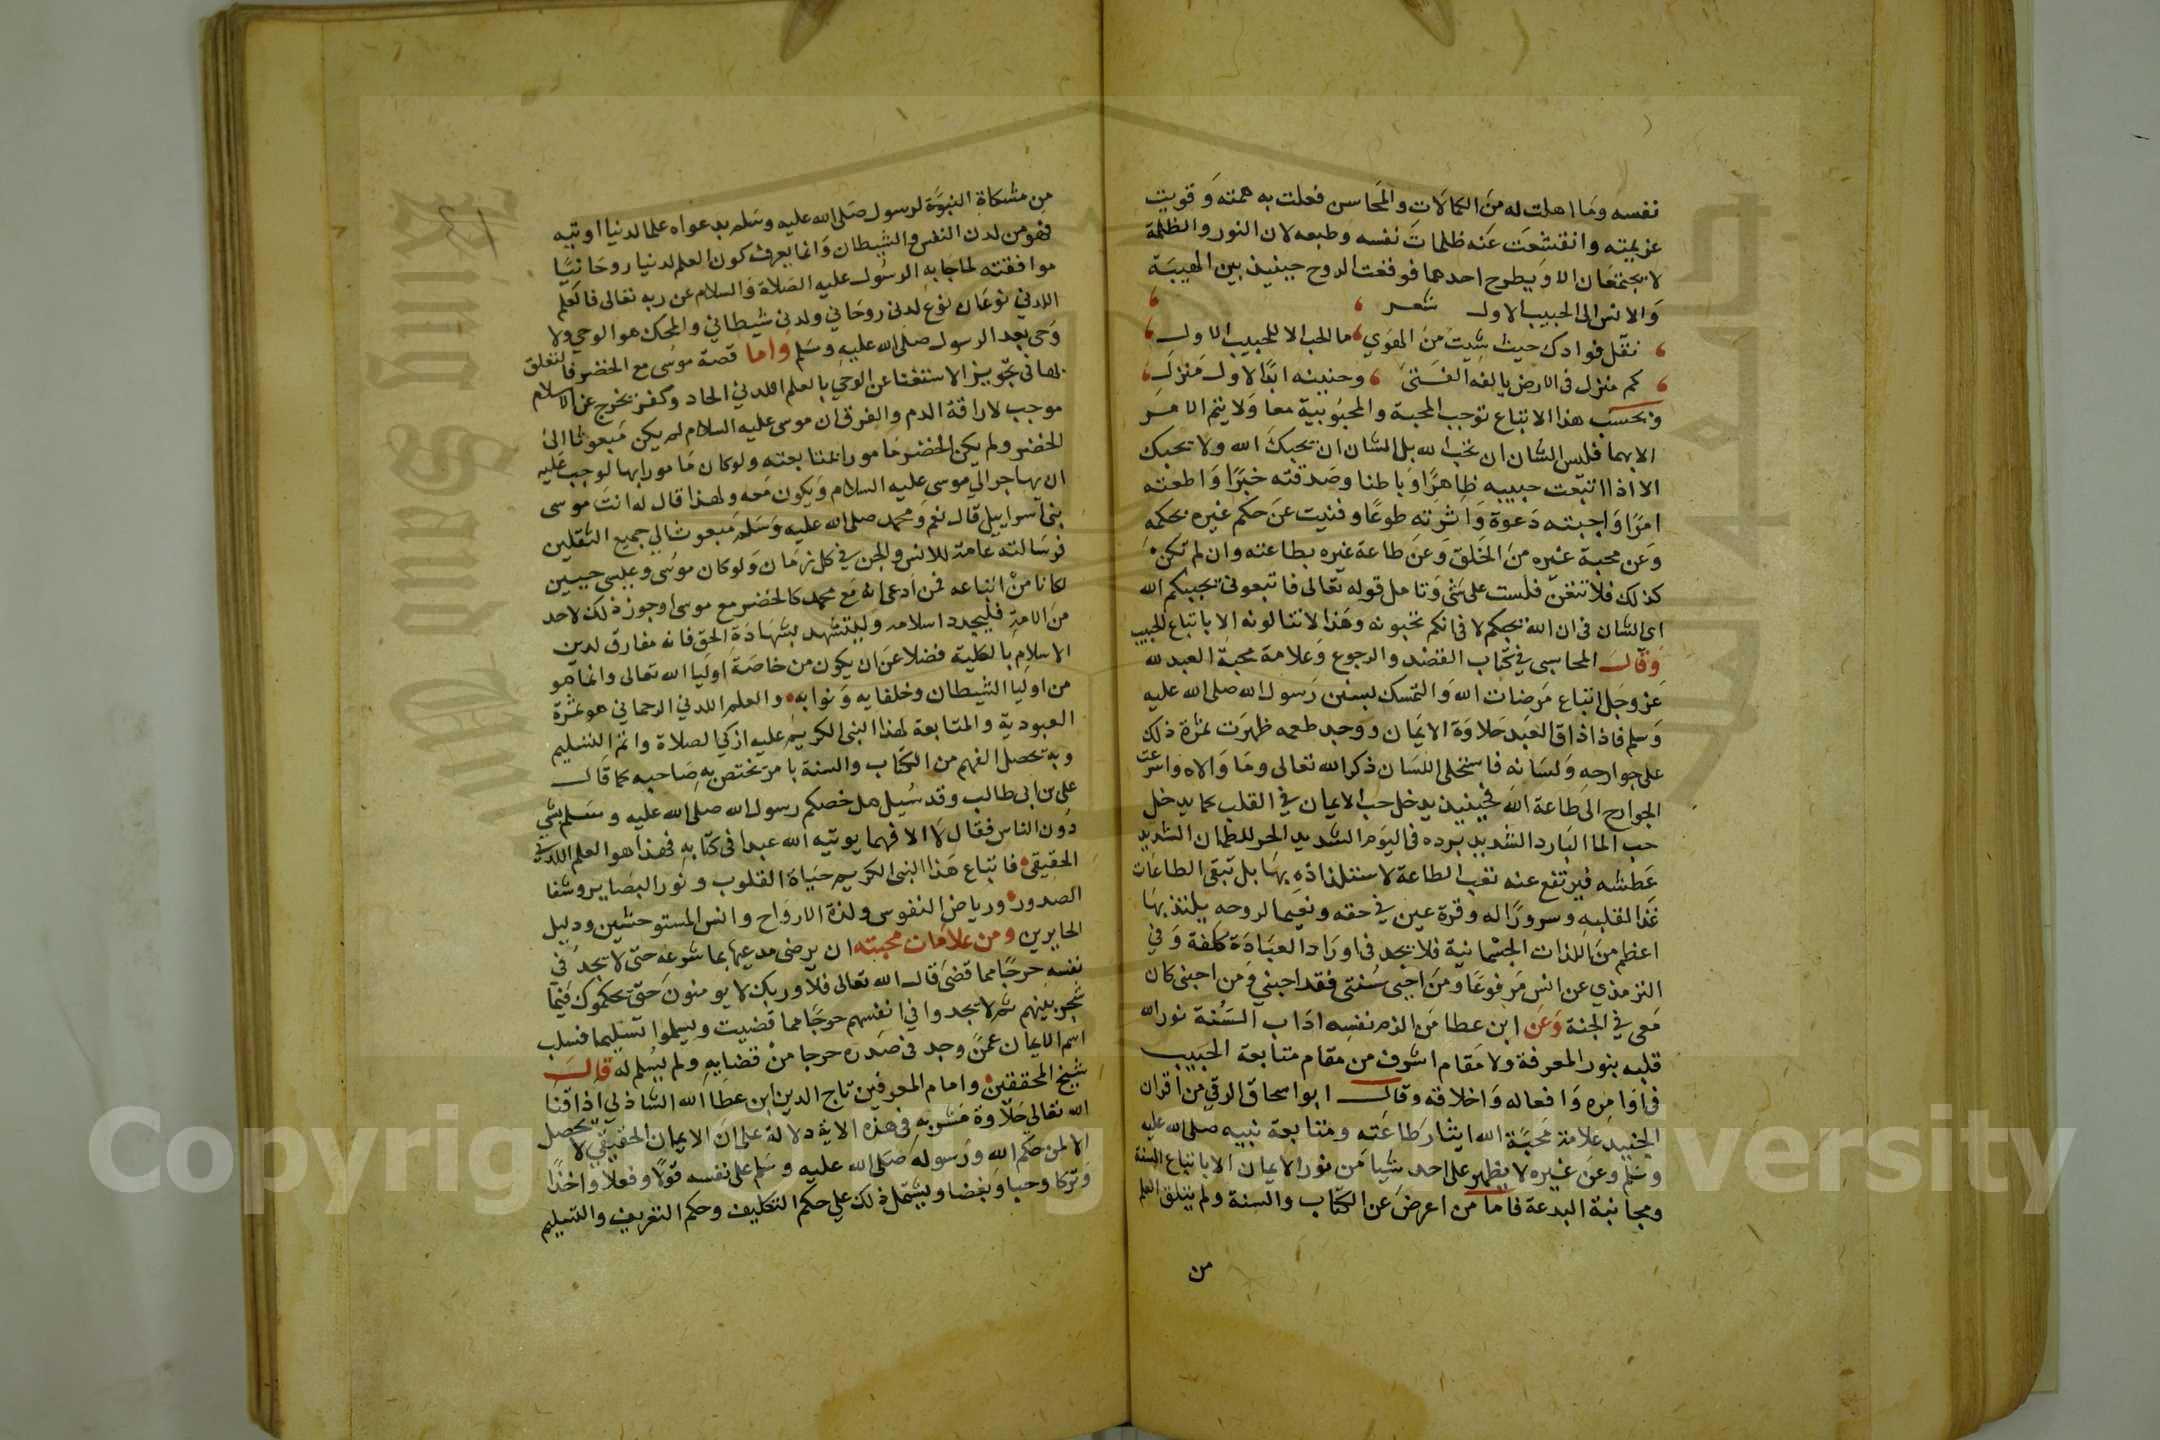 نفسه وما اهلت له من الكمالات والمحاسن فعلت به همته وقويت
عزيمته وانقشعت عنه ظلمات نفسه وطبعه لان النور والظلمة
لا يجتمعان الا ويطرح احدهما فوقعت الروح حينيذ بين الهيبة
والانس الى الحبيب الاول شعر
نقل فوادك حيث شيت من الهوي ما الحب الا للحبيب الاول
كم منزل فى الارض يالفه الفتى وحنينه ابدًا لاول منزل
وبحسب هذا الاتباع توجب المحبة والمحبوبية معا ولا يتم الامر
الا بهما فليس الشان ان تحب الله بل الشان ان يحبك الله ولا يحبك
الا اذا اتبعت حبيبه ظاهرًا وباطنا وصدقته خبرًا واطعته
امرًا واجبته دعوة واثرته طوعًا وفنيت عن حكم غيره بحكمه
وعن محبة غيره من الخلق وعن طاعة غيره بطاعته وان لم تكن
كذلك فلا تتعنّ فلست على شى وتامل قوله تعالى فاتبعونى يحببكم الله
اى الشان فى ان الله يحبكم لا فى انكم تحبونه وهذا لا تنالونه الا باتباع الحبيب
وقال المحاسبى في كتاب القصد والرجوع وعلامة محبة العبد لله
عز وجل اتباع مرضات الله والتمسك بسنن رسول الله صلى الله عليه
وسلم فاذا ذاق العبد حلاوة الايمان ووجد طعمه ظهرت ثمرة ذلك
على جوارحه ولسانه فاستحلى اللسان ذكر الله تعالى وما والاه واسرعت
الجوارح الى طاعة الله فحينيذ يدخل حب الايمان في القلب كما يدخل
حب الما البارد الشديد برده فى اليوم الشديد الحر للظمان الشديد
عطشه فيرتفع عنه تعب الطاعة لاستلذاذه بها بل تبقى الطاعات
غذا لقلبه وسرورًا له وقرة عين في حقه ونعيما لروحه يلتذ بها
اعظم من اللذات الجسمانية فلا يجد فى اوراد العبادة كلفة وفي
الترمذي عن انس مرفوعًا ومن احيى سنتى فقد احبني ومن احبنى كان
معى في الجنة وعن ابن عطا من الزم نفسه اداب السنة نور الله
قلبه بنور المعرفة ولا مقام اشرف من مقام متابعة الحبيب
فى اوامره وافعاله واخلاقه وقال ابو اسحاق الرقي من اقران
الجنيد علامة محبة الله ايثار طاعته ومتابعة نبيه صلى الله عليه
وسلم وعن غيره لا يظهر على احد شيا من نور الايمان الا باتباع السنة
ومجانبة البدعة فاما من اعرض عن الكتاب والسنة ولم يتلق العلم
من
من مشكاة النبوة لرسول صلى الله عليه وسلم بدعواه علما لدنيا اوتيه
فهو من لدن النفس والشيطان وانما يعرف كون العلم لدنيا روحانيًا
موافقته لما جا به الرسول عليه الصلاة والسلام عن ربه تعالى فالعلم
اللدني نوعان نوع لدنى روحاني ولدنى شيطاني والمحك هو الوحي ولا
وحى بعد الرسول صلى الله عليه وسلم واما قصة موسى مع الخضر فالتعلق
بها فى تجويز الاستغنا عن الوحي بالعلم اللدني الحاد وكفر يخرج عن الاسلام
موجب لاراقة الدم والفرق ان موسى عليه السلام لم يكن مبعوثا الى
الخضر ولم يكن الخضر مامورا بمتابعته ولو كان مامورا بها لوجب عليه
ان يهاجر الي موسى عليه السلام ويكون معه ولهذا قال له انت موسى
بنى اسراييل قال نعم ومحمد صلى الله عليه وسلم مبعوث الي جميع الثقلين
فرسالته عامة للانس والجن في كل زمان ولو كان موسى وعيسى حيين
لكانا من اتباعه فمن ادعى انه مع محمد كالخضر مع موسى او جوز ذلك لاحد
من الامة فليجدد اسلامه وليتشهد بشهادة الحق فانه مفارق لدين
الاسلام بالكلية فضلا عن ان يكون من خاصة اوليا الله تعالى وانما هو
من اوليا الشيطان وخلفايه ونوابه والعلم اللدني الرحماني هو ثمرة
العبودية والمتابعة لهذا النبى الكريم عليه ازكي الصلاة واتم التسليم
وبه تحصل الفهم من الكتاب والسنة بامر يختص به صاحبه كما قال
على بن ابى طالب وقد سُيل هل خصكم رسول الله صلى الله عليه وسلم بشي
دون الناس فقال لا الا فهما يوتيه الله عبدا فى كتابه فهذا هو العلم اللدني
الحقيقى فاتباع هذا النبى الكريم حياة القلوب ونور البصاير وشفا
الصدور ورياض النفوس ولذة الارواح وانس المستوحشين ودليل
الحايرين ومن علامات محبته ان يرضى مدعيها بما شرعه حتى لا يجد في
نفسه حرجًا مما قضى قال الله تعالى فلا وربك لا يومنون حتى يحكموك فيما
شجر بينهم ثم لا يجدوا في انفسهم حرجًا مما قضيت ويسلموا تسليما فسلب
اسم الايمان عمن وجد فى صدره حرجا من قضايه ولم يسلم له قال
شيخ المحققين وامام المعرفين تاج الدين ابن عطا الله الشاذلي اذاقنا
الله تعالي حلاوة مشربه فى هذه الاية دلالة على ان الايمان الحقيقي لا يحصل
الا لمن حكم الله ورسوله صلى الله عليه وسلم على نفسه قولًا وفعلا واخذًا
وتركا وحبا وبغضا ويشتمل ذلك على حكم التكليف وحكم التعريف والتسليم
Copyright © King Saud University
King Saud University